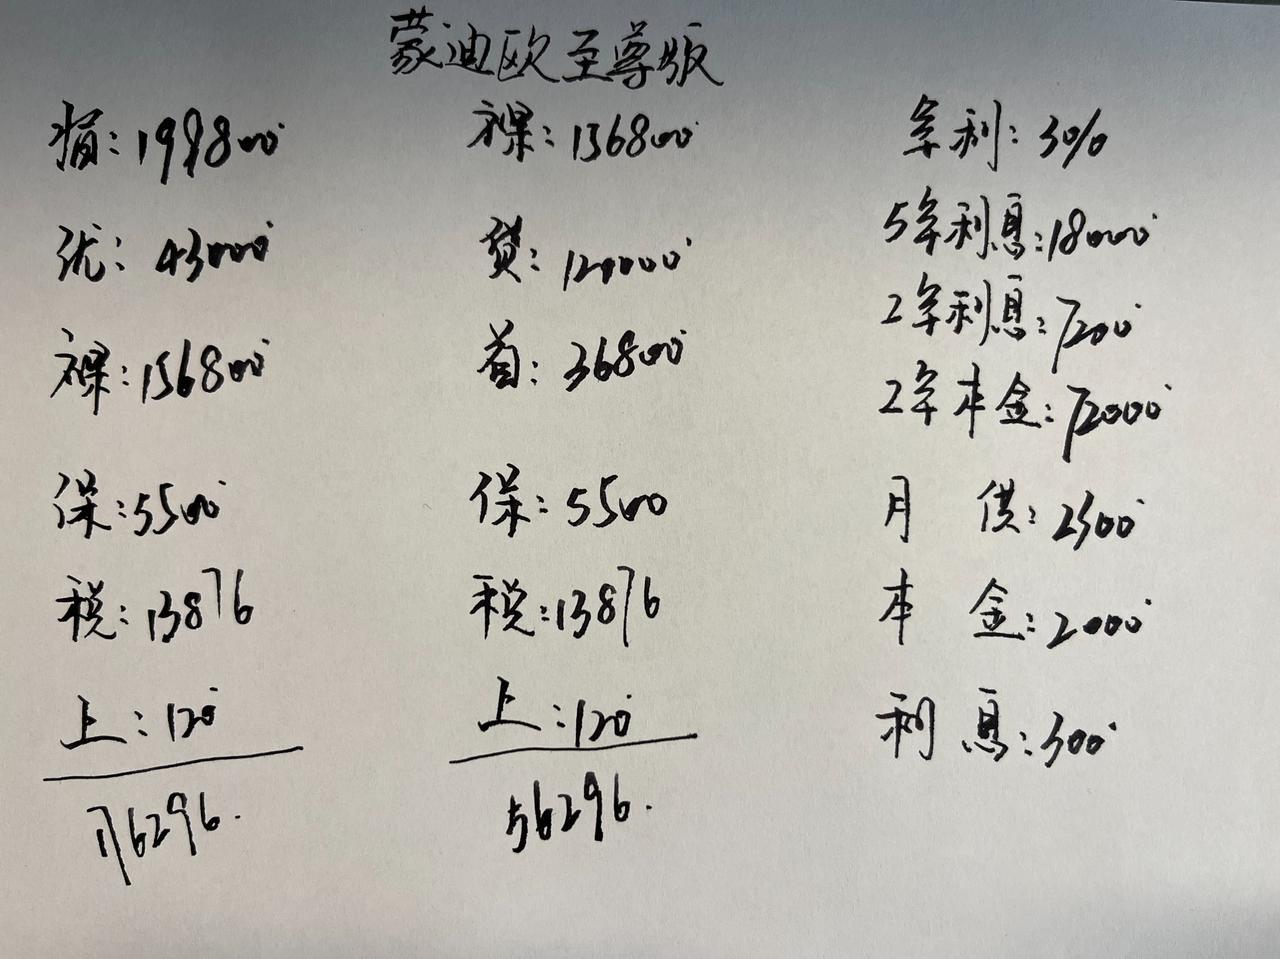 蒙迪欧至尊版
指：199800
优：43000
裸：156800
保：5500
税：13876
上：120
176296.
裸：156800
贷：120000
首：36800
保：5500
税：13876
上：120
56296.
年利：3%
5年利息：18000
2年利息：7200
2年本金：72000
月供：2300
本金：2000
利息：300